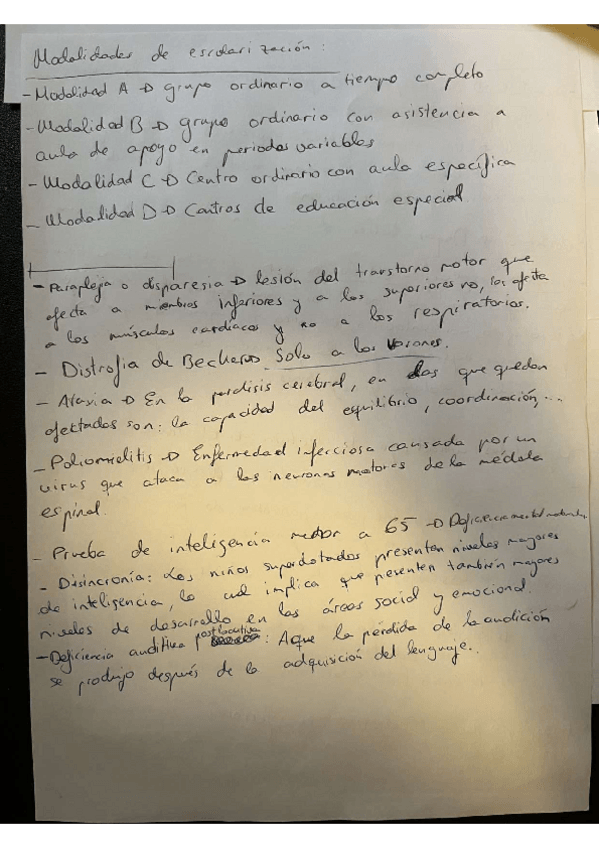 Modalidades de escolarización:
- Modalidad A → grupo ordinario a tiempo completo
- Modalidad B → grupo ordinario con asistencia a
aula de apoyo en periodos variables
- Modalidad C → Centro ordinario con aula específica
- Modalidad D → Centros de educación especial
- o disparesia → lesión del transtorno motor que
afecta a miembros inferiores y a los superiores no, los afecta
a los músculos cardíacos y no a los respiratorios.
- Distrofia de Solo a los varones.
- Ataxia → En la cerebral, en las que quedan
afectados son: la capacidad del equilibrio, coordinación,...
- → Enfermedad infecciosa causada por un
virus que ataca a las neuronas motores de la médula
espinal.
- Prueba de inteligencia a 65 →
- Disincronía: Los niños superdotados presentan niveles mayores
de inteligencia, lo cual implica que presenten también mayores
niveles de desarrollo en las áreas social y emocional.
- Deficiencia auditiva postlocutiva: la pérdida de la audición
se produjo después de la adquisición del lenguaje..